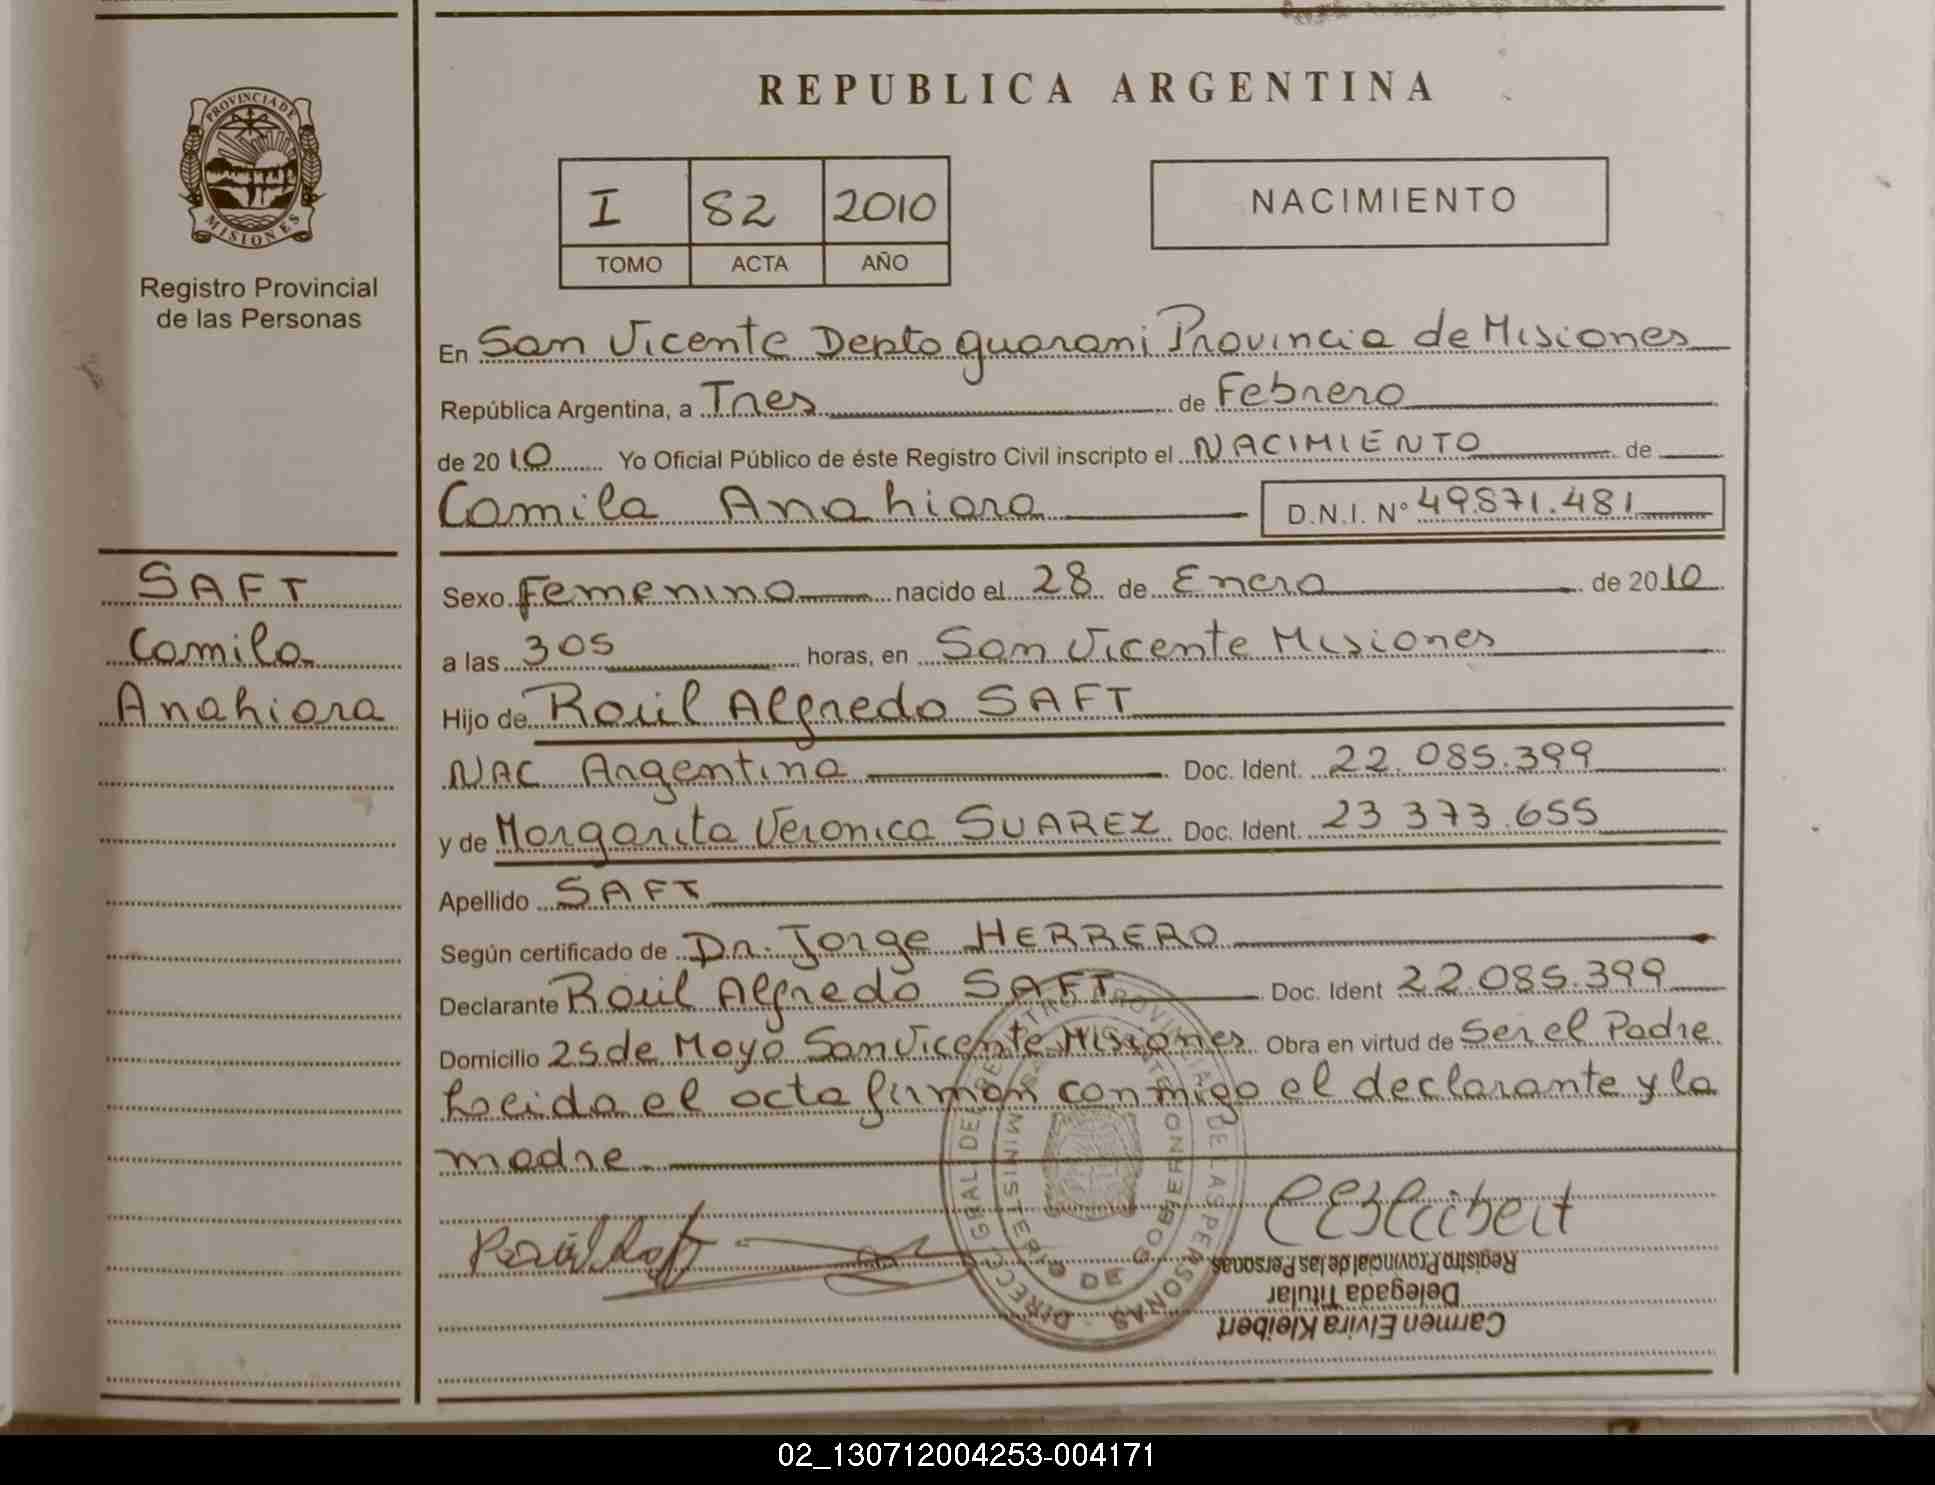 REPUBLICA ARGENTINA
PROVINCIA DE
MISIONES
Registro Provincial
de las Personas
I 82 2010
TOMO ACTA AÑO
NACIMIENTO
En San Vicente Depto guarani Provincia de Misiones
República Argentina, a Tres de Febrero
de 2010 Yo Oficial Público de éste Registro Civil inscripto el NACIMIENTO de
Camila Anahiara D.N.I. Nº 49.871.481
SAFT
Camila
Anahiara
Sexo Femenino nacido el 28 de Enero de 2010
a las 305 horas, en San Vicente Misiones
Hijo de Raúl Alfredo SAFT
NAC Argentina Doc. Ident. 22.085.399
y de Margarita Veronica SUAREZ Doc. Ident. 23 373.655
Apellido SAFT
Según certificado de Dr. Jorge HERRERO
Declarante Raúl Alfredo SAFT Doc. Ident 22.085.399
Domicilio 25 de Mayo San Vicente Misiones Obra en virtud de Ser el Padre
Leida el acta firman conmigo el declarante y la
madre
DIRECC. GRAL DEL REGISTRO PROVINCIAL DE LAS PERSONAS
MINISTERIO DE GOBIERNO
Carmen Elvira Kleibert
Delegada Titular
Registro Provincial de las Personas
02_130712004253-004171